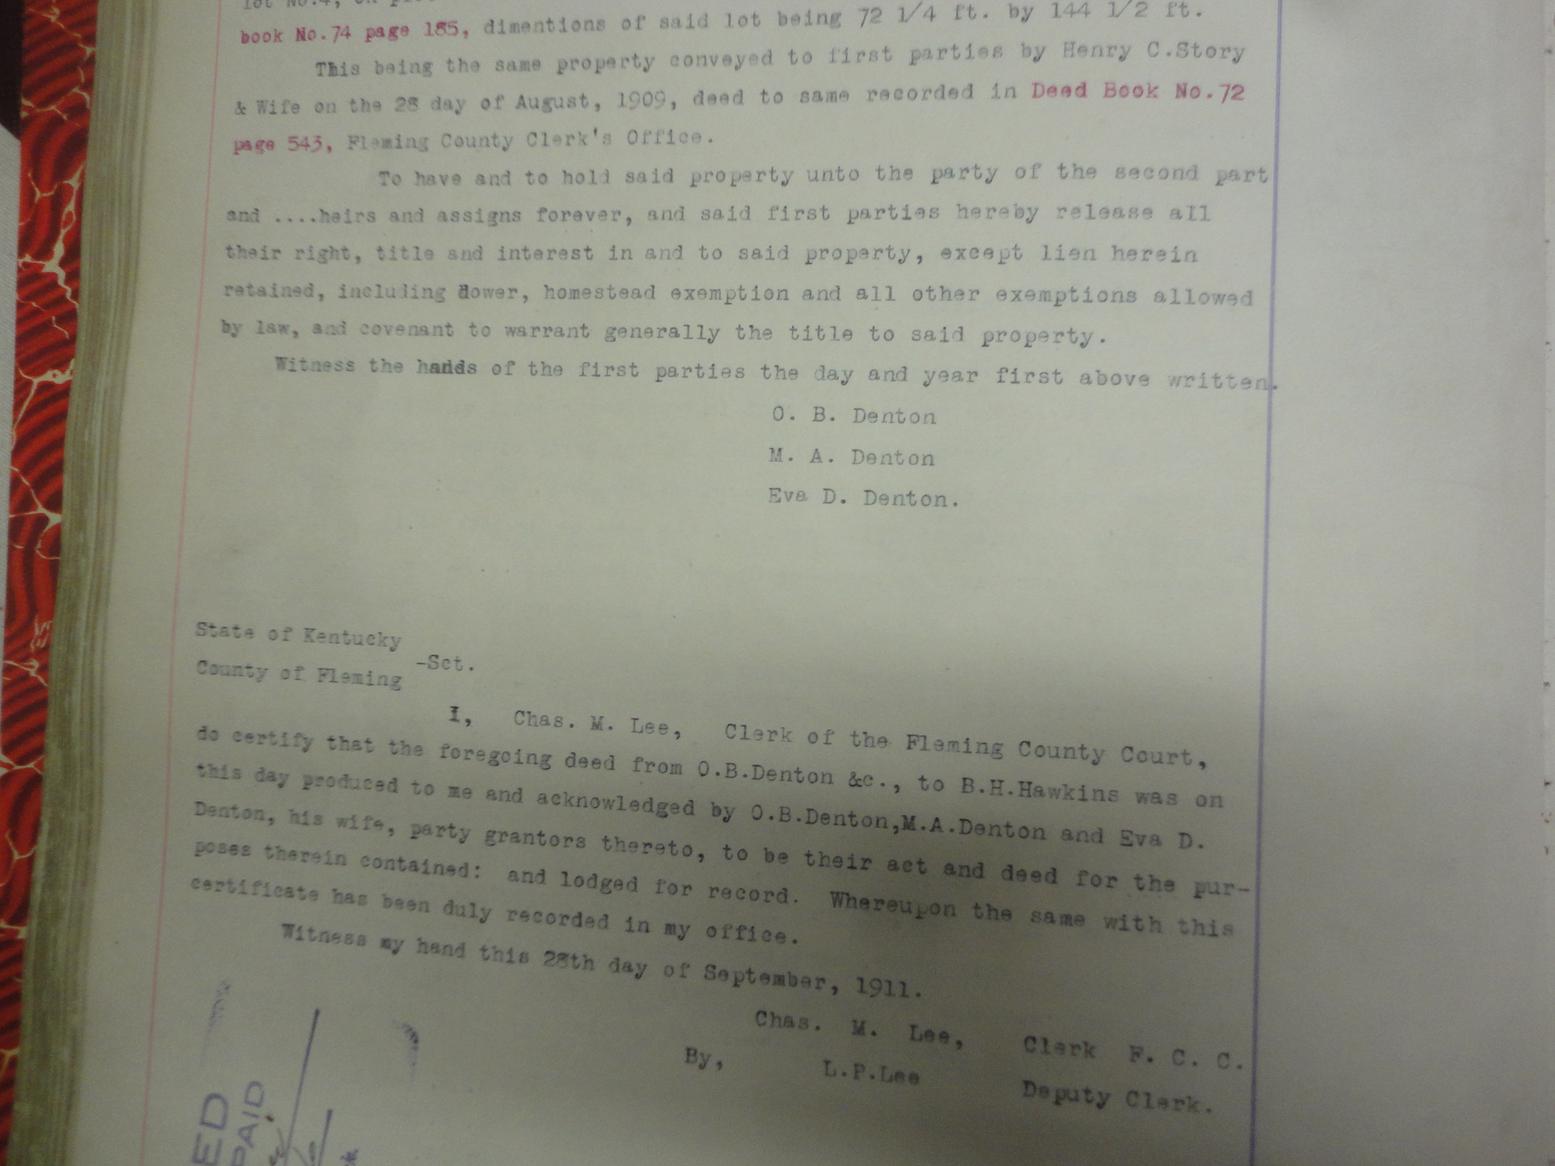 lot No.4, on
book No.74 page 185, dimentions of said lot being 72 1/4 ft. by 144 1/2 ft.
This being the same property conveyed to first parties by Henry C.Story
& Wife on the 28 day of August, 1909, deed to same recorded in Deed Book No.72
page 543, Fleming County Clerk's Office.
To have and to hold said property unto the party of the second part
and ....heirs and assigns forever, and said first parties hereby release all
their right, title and interest in and to said property, except lien herein
retained, including dower, homestead exemption and all other exemptions allowed
by law, and covenant to warrant generally the title to said property.
Witness the hands of the first parties the day and year first above written.
O. B. Denton
M. A. Denton
Eva D. Denton.
State of Kentucky
-Sct.
County of Fleming
I, Chas. M. Lee, Clerk of the Fleming County Court,
do certify that the foregoing deed from O.B.Denton &c., to B.H.Hawkins was on
this day produced to me and acknowledged by O.B.Denton,M.A.Denton and Eva D.
Denton, his wife, party grantors thereto, to be their act and deed for the pur-
poses therein contained: and lodged for record. Whereupon the same with this
certificate has been duly recorded in my office.
Witness my hand this 28th day of September, 1911.
Chas. M. Lee, Clerk F. C. C.
By, L.P.Lee Deputy Clerk.
ED
PAID